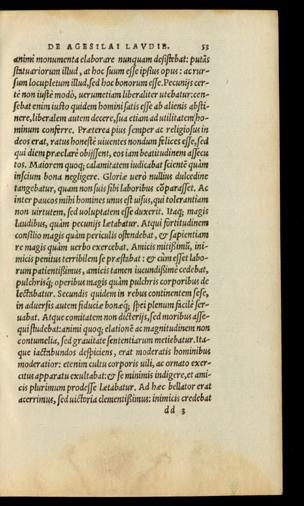 DE AGESILAI LAVDIB. 53
animi monumenta elaborare nunquam desistebat: putās
statuariorum illud, at hoc suum esse ipsius opus: ac rur-
sum locupletum illud, sed hoc bonorum esse. Pecunijs cer-
te non iuste modò, uerumetiam liberaliter utebatur: cen-
sebat enim iusto quidem homini satis esse ab alienis absti-
nere, liberalem autem decere, sua etiam ad utilitatem ho-
minum conferre. Præterea pius semper ac religiosus in
deos erat, ratus honeste uiuentes nondum felices esse, sed
qui diem præclare obijssent, eos iam beatitudinem assecu
tos. Maiorem quoq; calamitatem iudicabat sciente quàm
inscium bona negligere. Gloriæ uerò nullius dulcedine
tangebatur, quam non suis sibi laboribus cōparasset. Ac
inter paucos mihi homines unus est uisus, qui tolerantiam
non uirtutem, sed uoluptatem esse duxerit. Itaq; magis
laudibus, quàm pecunijs lætabatur. Atqui fortitudinem
consilio magis quàm periculis ostendebat, & sapientiam
re magis quàm uerbo exercebat. Amicis mitissimus, ini-
micis penitus terribilem se præstabat: & cùm esset labo-
rum patientissimus, amicis tamen iucundissime cedebat,
pulchrisq; operibus magis quàm pulchris corporibus de
lectabatur. Secundis quidem in rebus continentem sese,
in aduersis autem fiduciæ bonæq; spei plenum facile ser-
uabat. Atque comitatem non dicterijs, sed moribus asse-
qui studebat: animi quoq; elationē ac magnitudinem non
contumelia, sed grauitate sententiarum metiebatur. Ita-
que iactabundos despiciens, erat moderatis hominibus
moderatior: etenim cultu corporis uili, ac ornato exer-
citus apparatu exultabat: & se minimis indigere, et ami-
cis plurimum prodesse lætabatur. Ad hæc bellator erat
acerrimus, sed uictoria clementissimus: inimicis credebat
dd 3